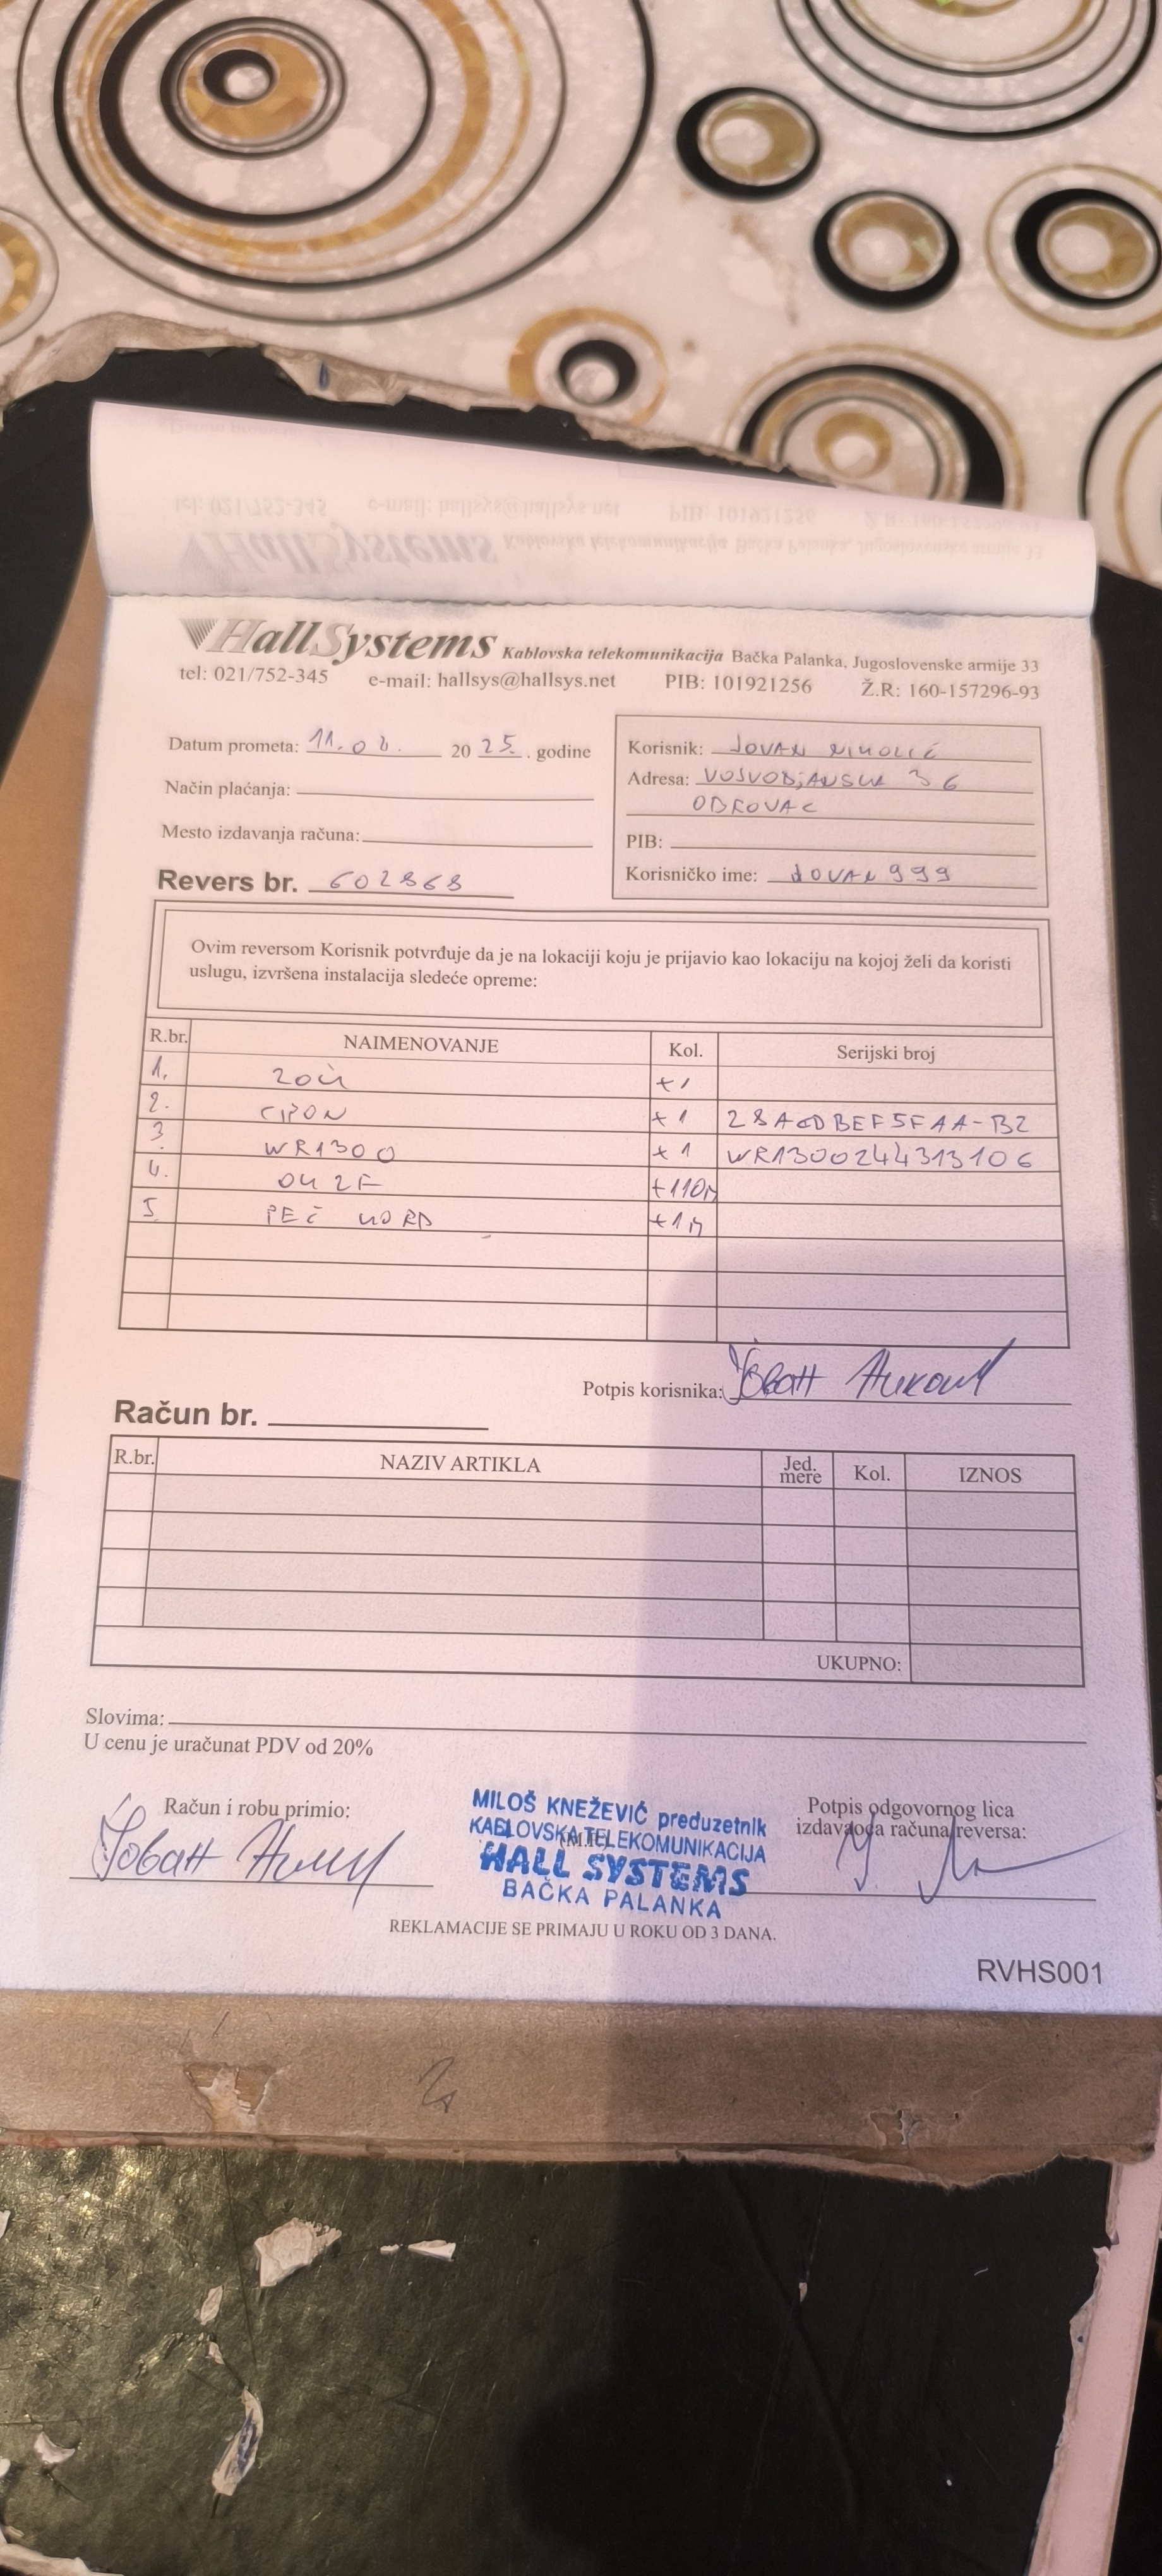 HallSystems Kablovska telekomunikacija Bačka Palanka, Jugoslovenske armije 33
tel: 021/752-345 e-mail: hallsys@hallsys.net PIB: 101921256 Ž.R: 160-157296-93
Datum prometa: 11.02. 20 25. godine
Način plaćanja:
Mesto izdavanja računa:
Revers br. 602868
Korisnik: JOVAN NIKOLIĆ
Adresa: VOJVOĐANSKA 36
ODROVAC
PIB:
Korisničko ime: JOVAN999
Ovim reversom Korisnik potvrđuje da je na lokaciji koju je prijavio kao lokaciju na kojoj želi da koristi
uslugu, izvršena instalacija sledeće opreme:
R.br. NAIMENOVANJE Kol. Serijski broj
1. +1
2. +1 28ACDBEF5FAA-B2
3 WR1300 +1 WR1300244313106
4. +110m
5 +1
Potpis korisnika: Јован Николић
Račun br.
R.br. NAZIV ARTIKLA Jed. mere Kol. IZNOS
UKUPNO:
Slovima:
U cenu je uračunat PDV od 20%
Račun i robu primio:
Јован Николић
MILOŠ KNEŽEVIĆ preduzetnik
KABLOVSKA TELEKOMUNIKACIJA
HALL SYSTEMS
BAČKA PALANKA
(M.P.)
Potpis odgovornog lica
izdavaoca računa/reversa:
REKLAMACIJE SE PRIMAJU U ROKU OD 3 DANA.
RVHS001